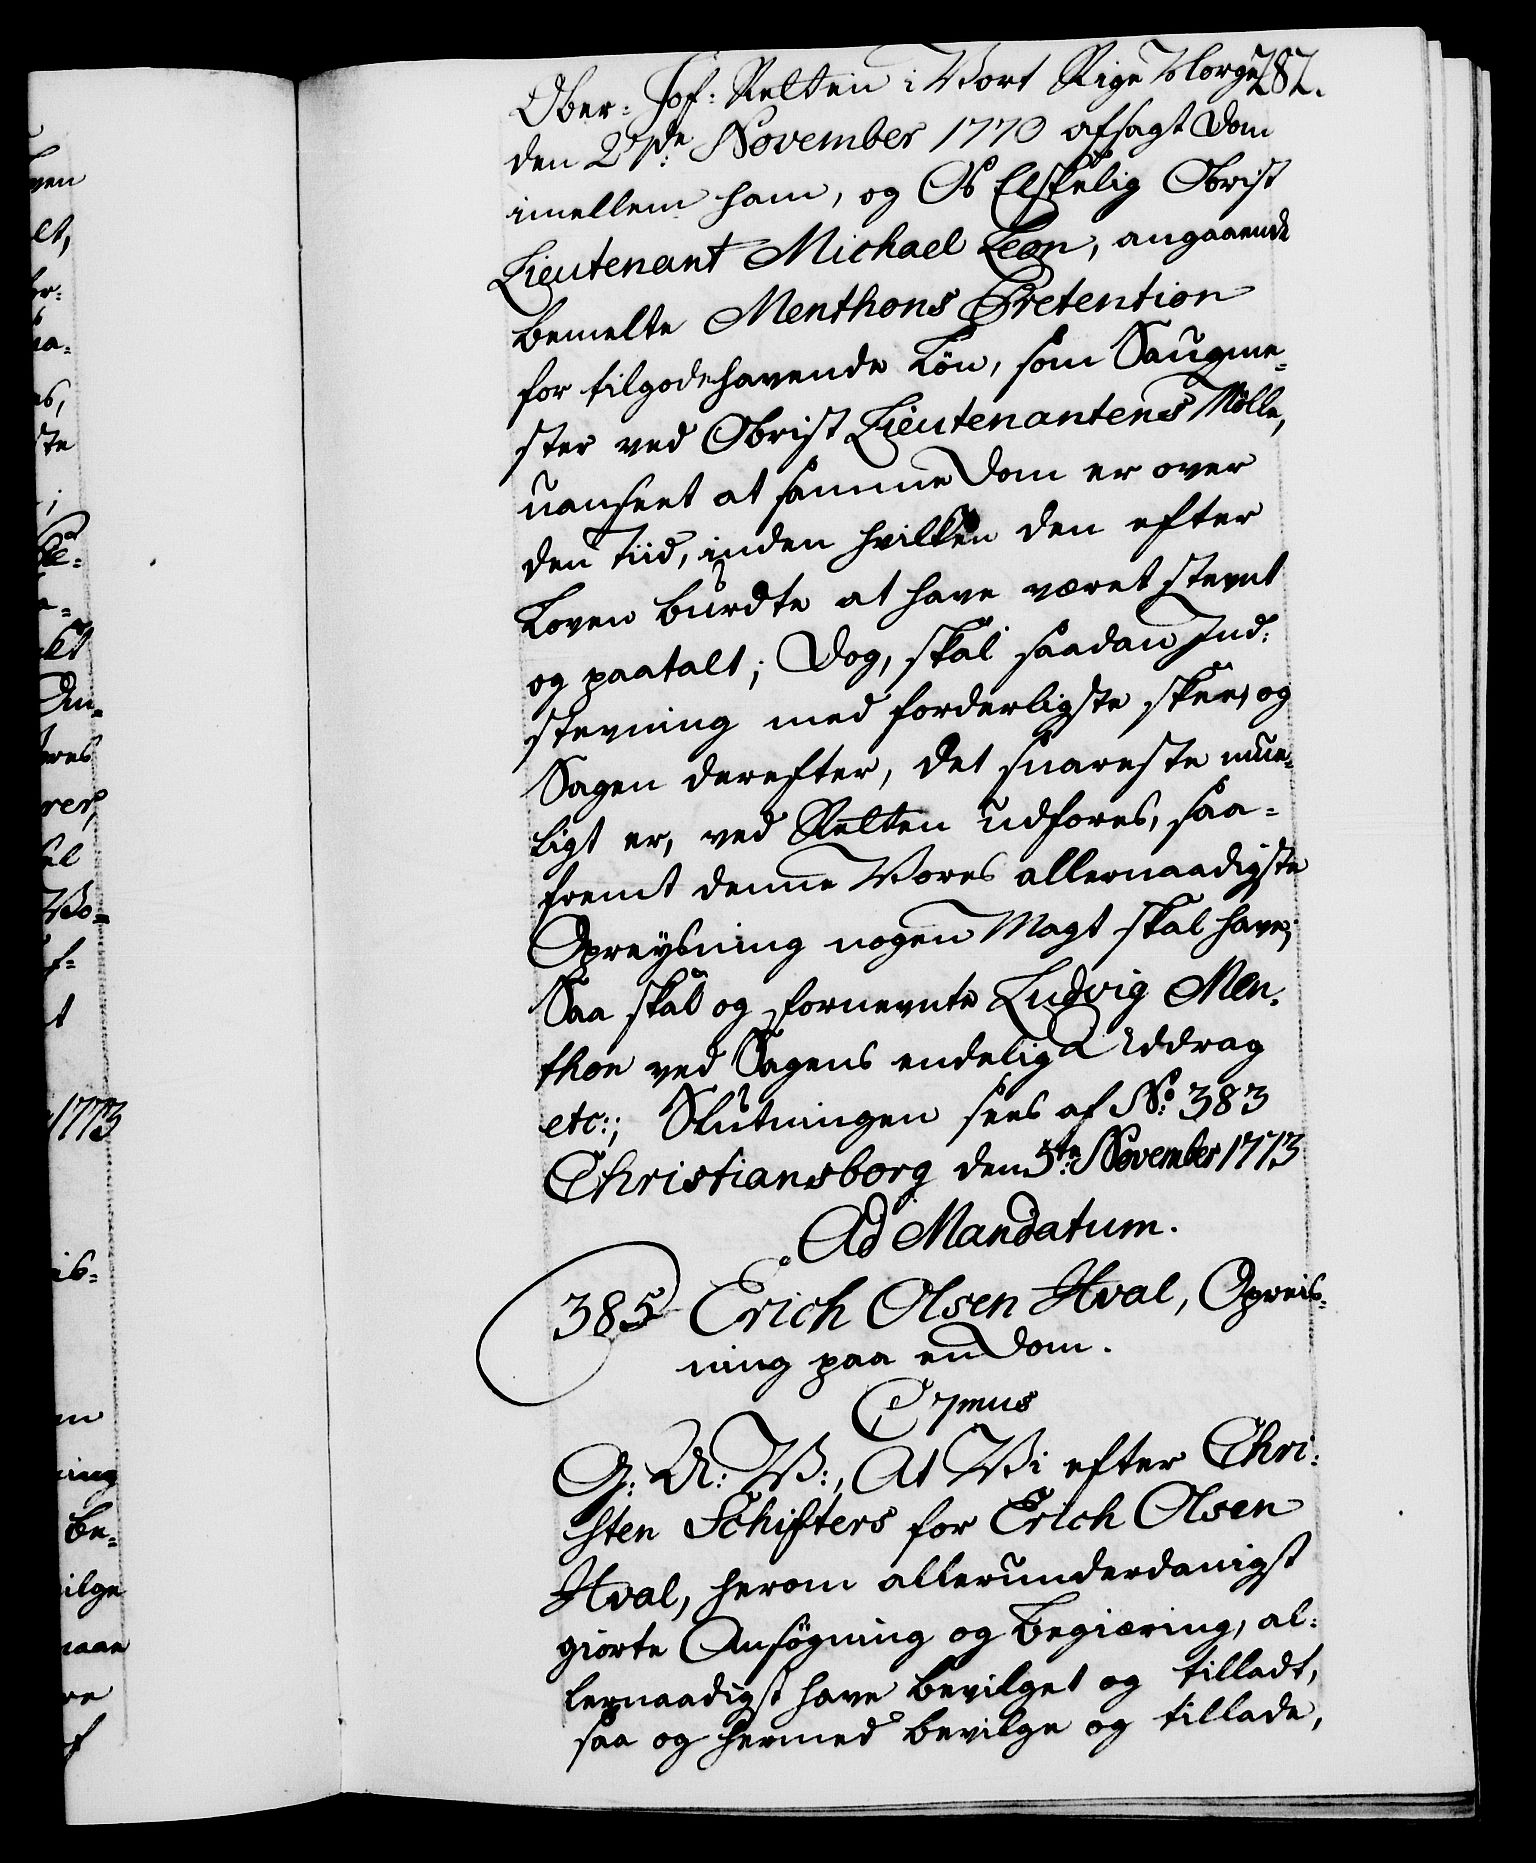 282.
Ober-Hof-Retten i Vort Rige Norge
den 27de November 1770 afsagt Dom
imellem ham, og Os Elskelig Obrist
Lieutenant Michael Leon, angaaende
bemelte Menthons Prætention
for tilgodehavende Løn, som Saugme-
ster ved Obrist Lieutenantens Mølle,
uanseet at samme Dom er over
den Tiid, inden hvilken den efter
Loven burdte at have været stevnt
og paatalt; Dog, skal saadan Ind-
stevning med forderligste skee, og
Sagen derefter, det snareste mue-
ligt er, ved Retten udføres, saa-
fremt denne Vores allernaadigste
Opreysning nogen Magt skal have;
Saa skal og fornevnte Ludvig Men-
thon ved Sagens endelig Uddrag
etc:; Slutningen sees af No: 383
Christiansborg den 5te November 1773
Ad Mandatum.
385 Erich Olsen Hval, Opreis-
ning paa en Dom.
C 7mus
G: A: V:, At Vi efter Chri-
sten Schifters for Erich Olsen
Hval, herom allerunderdanigst
giorte Ansøgning og Begiæring, al-
lernaadigst have bevilget og tilladt,
saa og hermed bevilge og tillade,